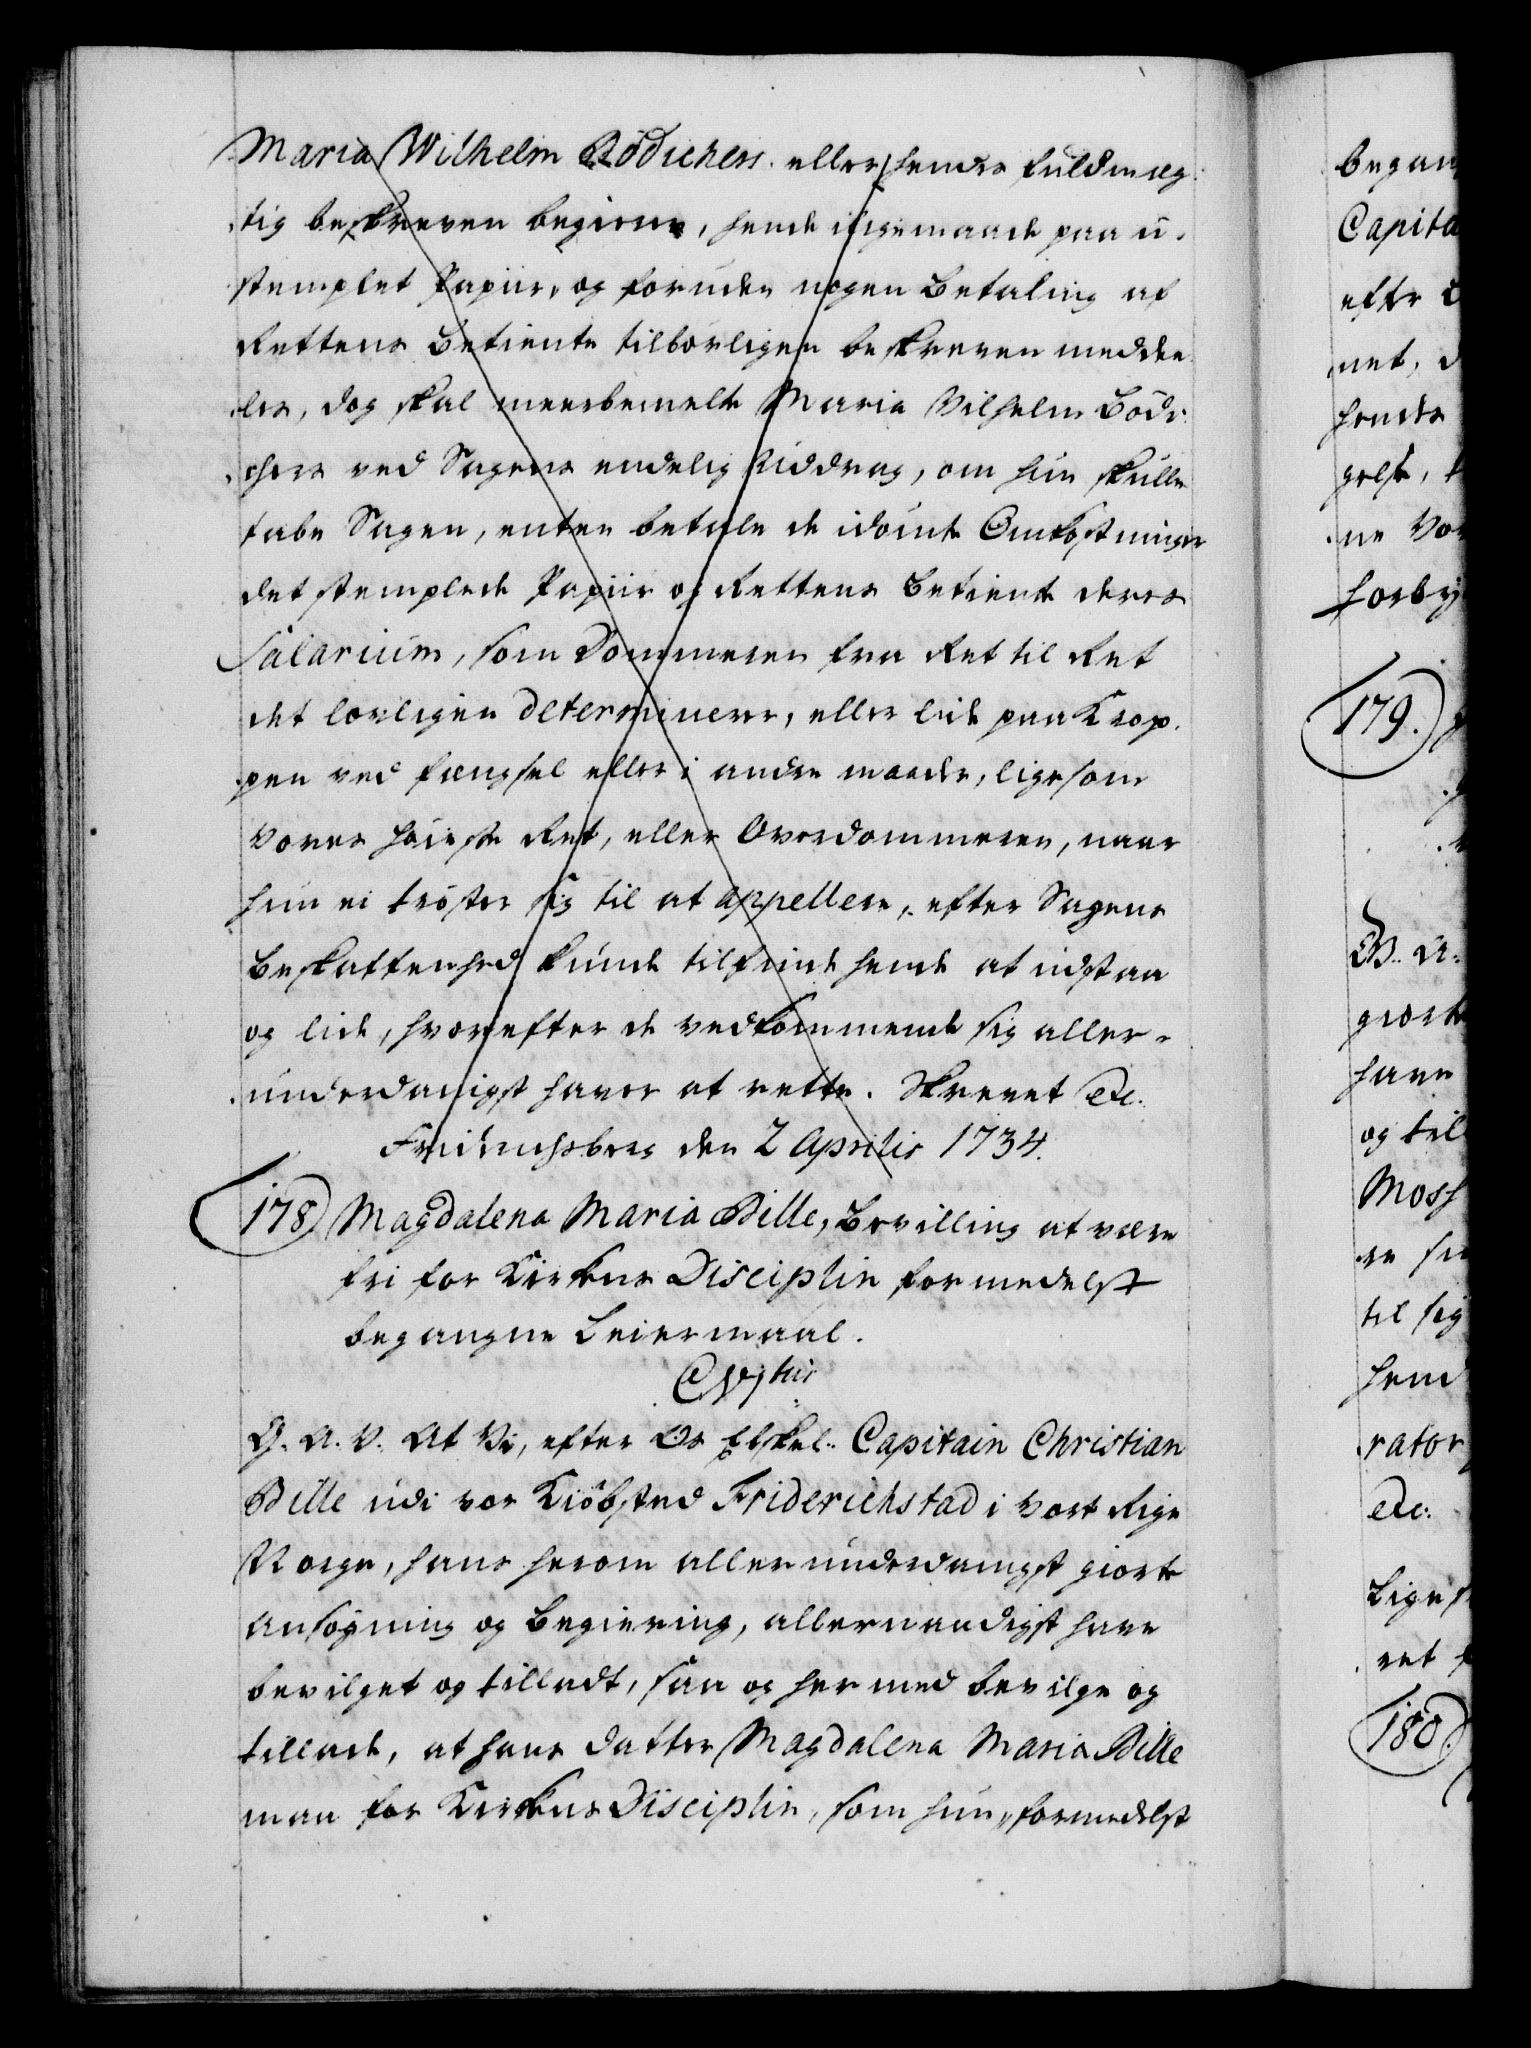 Maria Wilhelm Bödichers eller hendes fuldmæg-
tig beskreven begiere, hende ligemaade paa u-
stemplet Papiir, og foruden nogen Betaling af
Rettens Betiente tilbørligen beskreven meddee-
les, dog skal meerbemelte Maria Wilhelm Bödi-
chers ved Sagens endelig Uddrag, om hun skulle
tabe Sagen, enten betale de idømte Omkostninger
det stemplede Papiir og Rettens Betiente deres
Salarium, som Dommeren fra Ret til Ret
det lovligen determinerer, eller lide paa Krop-
pen ved fængsel eller i andre maader, ligesom
Vores høieste Ret, eller Overdommeren, naar
hun ei trøster sig til at appellere, efter Sagens
Beskaffenhed kunde tilfinde hende at udstaa
og lide, hvorefter de vedkommende sig aller-
underdanigst haver at rette. Skrevet etc.
Fridrichsberg den 2 Aprilis 1734.
178 Magdalena Maria Bille, Bevilling at være
fri for Kirkens Disciplin formedelst
begangne Leiermaal.
C VI tus
G. A. V. At Vi, efter Os Elskel. Capitain Christian
Bille udi vor Kiöbsted Friderichstad i Vort Rige
Norge, hans herom allerunderdanigst giorte
Ansøgning og Begiering, allernaadigst have
bevilget og tilladt, saa og hermed bevilge og
tillade, at hans Datter Magdalena Maria Bille
maa for Kirkens Disciplin, som hun, formedelst
Capita
efter
net, d
hendes
gelse,
ne Vor
forby
179.
G. A.
giorte
have
og til
Moss
til sig
hend
rator
etc.
Lige s
ret
180